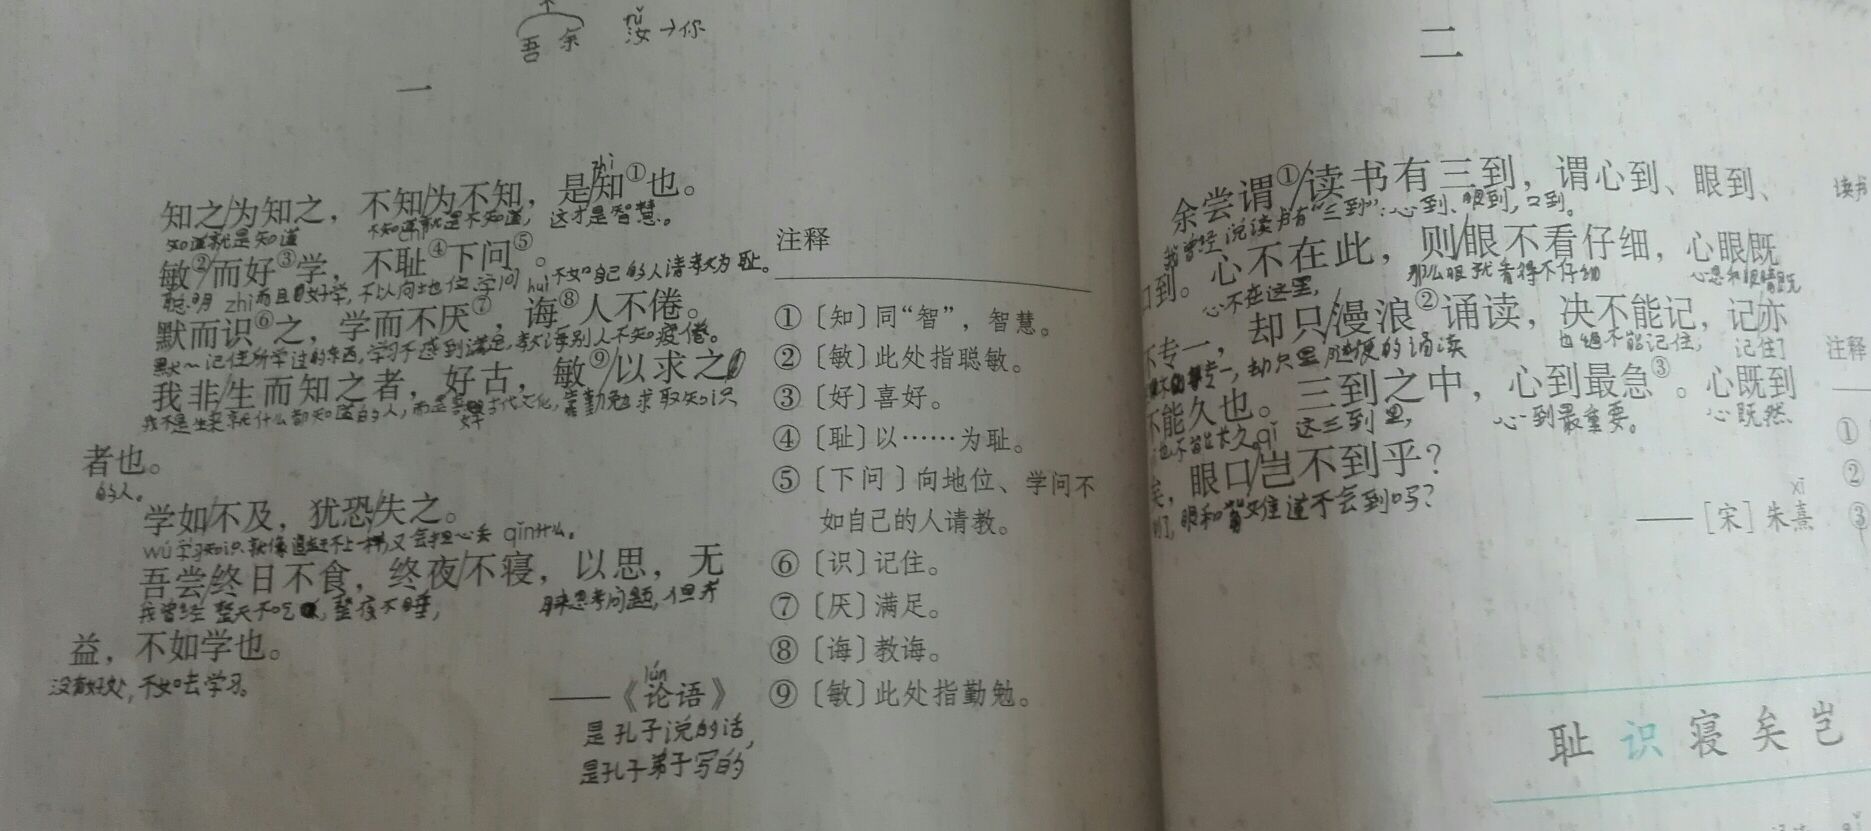 吾 余 汝→你
rǔ
一
zhì
知之/为知之，不知/为不知，是/知①也。
知道就是知道 不知道就是不知道，这才是智慧。
chǐ
敏②/而好③学，不耻④下问⑤。
聪明 而且好学，不以向地位、学问不如自己的人请教为耻。
zhì huì
默而识⑥之，学而不厌⑦，诲⑧人不倦。
记住所学过的东西，学习不感到满足，教诲别人不知疲倦。
我非/生而知之者，好古，敏⑨/以求之
我不是生来就什么都知道的人，而是 古代文化，靠勤勉求取知识
者也。
的人。
学如/不及，犹恐/失之。
wú 学习知识就像追赶不上一样，又会担心丢 qǐn 什么。
吾尝/终日不食，终夜/不寝，以思，无
我曾经整天不吃，整夜不睡， 用来思考问题，但并
益，不如学也。
没有好处，不如去学习。
lún
——《论语》
是孔子说的话，
是孔子弟子写的
注释
①〔知〕同“智”，智慧。
②〔敏〕此处指聪敏。
③〔好〕喜好。
④〔耻〕以……为耻。
⑤〔下问〕向地位、学问不
如自己的人请教。
⑥〔识〕记住。
⑦〔厌〕满足。
⑧〔诲〕教诲。
⑨〔敏〕此处指勤勉。
二
余尝谓①/读书有三到，谓心到、眼到、
我曾经说读书有“三到”：心到、眼到，口到。
口到。心不在此，则/眼不看仔细，心眼/既
心不在这里， 那么眼就看得不仔细 心思和眼睛既
不专一，却只/漫浪②诵读，决不能记，记/亦
专一，却只是随便的诵读 不能记住， 记住了
不能久也。三到之中，心到最急③。心既到
也不能 太久。qǐ 这三到里， 心到最重要。 心既然
矣，眼口/岂不到乎？
到了，眼和 难道不会到吗？
xī
——［宋］朱熹
耻 识 寝 矣 岂
读书
注释
①
②
③